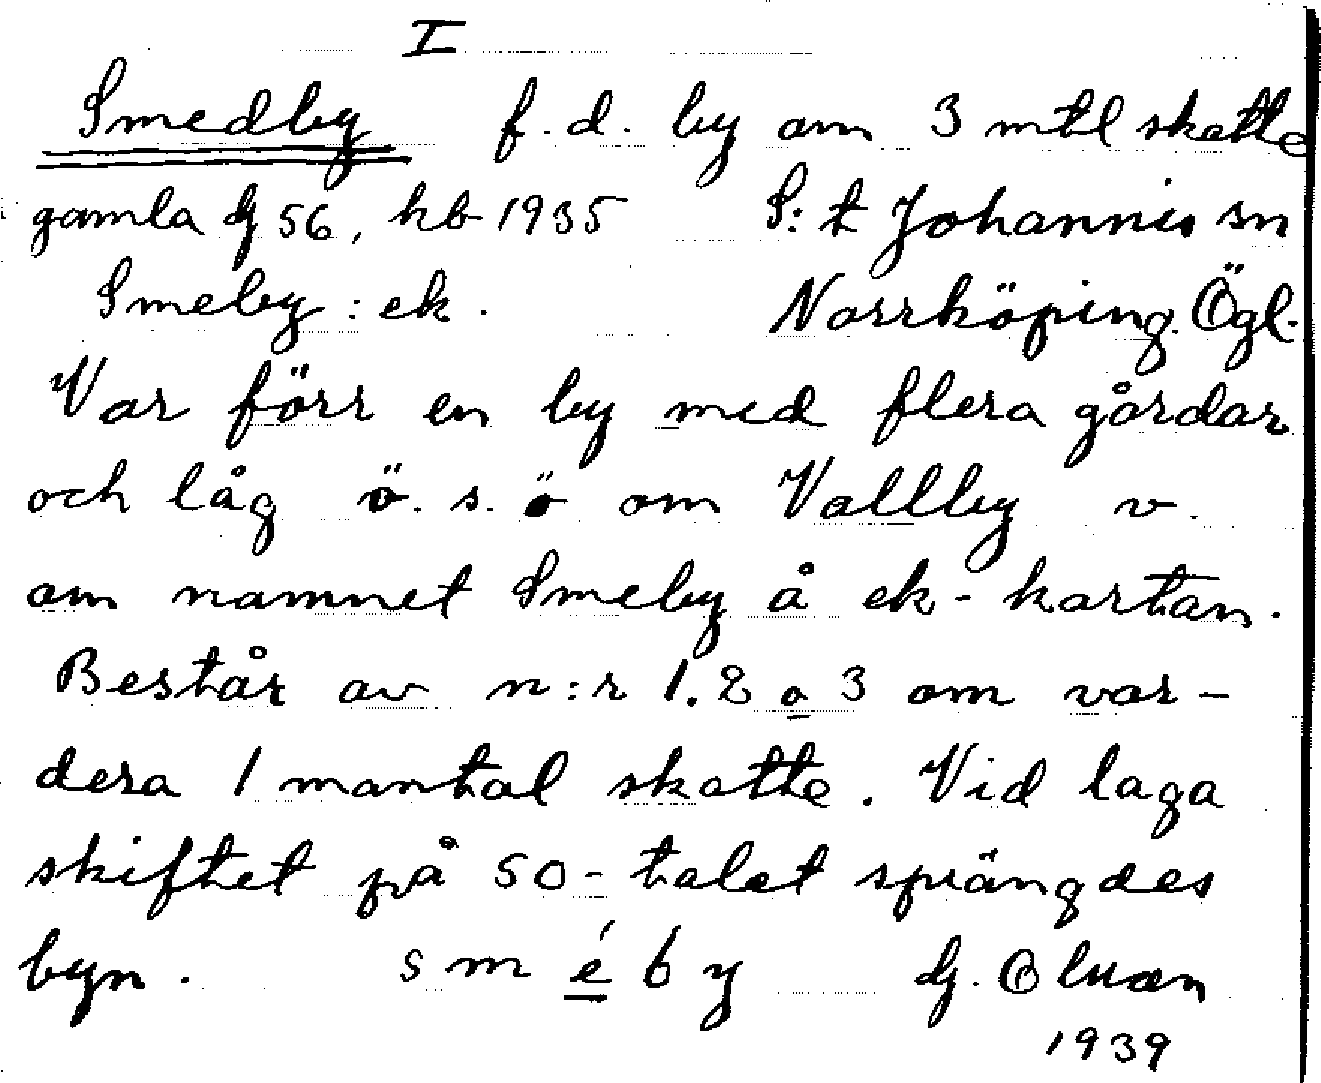 I
Smedby f. d. by om 3 mtl skatte
gamla G 56, hb 1935 S:t Johannis sn
Smeby: ek. Norrköping. Ögl.
Var förr en by med flera gårdar
och låg ö. s. ö om Vallby v.
om namnet Smeby å ek-kartan.
Består av n:r 1. 2 o 3 om var-
dera 1 mantal skatte. Vid laga
skiftet på 50-talet sprängdes
byn. s m é b y G.
1939